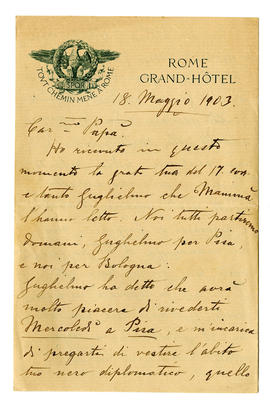 SPQR
TOVT CHEMIN MÈNE À ROME
ROME
GRAND-HÔTEL
18. Maggio 1903.
Car.mo Papà.
Ho ricevuto in questo
momento la grata tua del 17. corr.
e tanto Guglielmo che Mammà
l'hanno letto. Noi tutti partiremo
domani, Guglielmo per Pisa,
e noi per Bologna.
Guglielmo ha detto che avrà
molto piacere di rivederti
Mercoledì a Pisa, e m'incarica
di pregarti di vestire l'abito
tuo nero diplomatico, quello